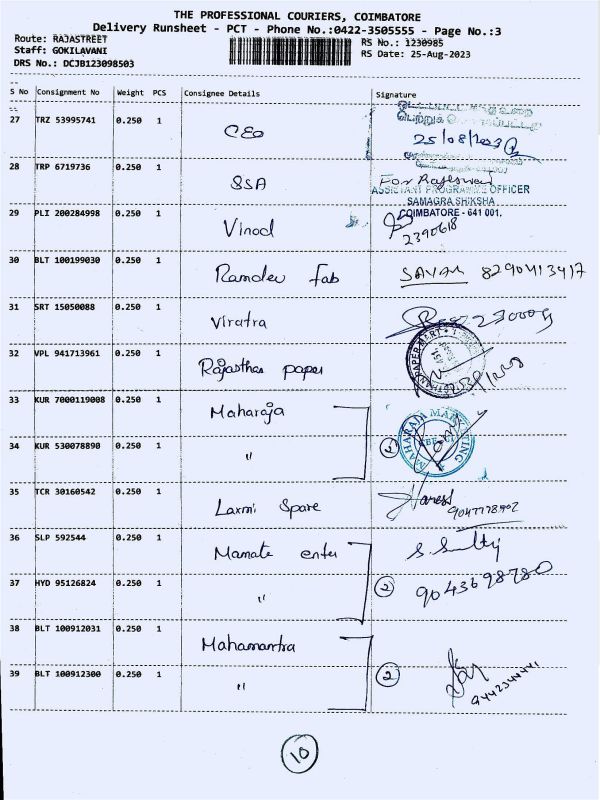 THE PROFESSIONAL COURIERS, COIMBATORE
Delivery Runsheet - PCT - Phone No.:0422-3505555 - Page No.:3
Route: RAJASTREET
RS No.: 1230985
Staff: GOKILAVANI
RS Date: 25-Aug-2023
DRS No.: DCJB123098503
S No Consignment No Weight PCS Consignee Details Signature
27 TRZ 53995741 0.250 1 CEO
25/08/2023
28 TRP 6719736 0.250 1 SSA For Rajeswari
ASSISTANT PROGRAMME OFFICER
SAMAGRA SHIKSHA
COIMBATORE - 641 001.
29 PLI 200284998 0.250 1 Vinod 2390618
30 BLT 100199030 0.250 1 Ramdev fab SAVAN 8290413417
31 SRT 15050088 0.250 1 Viratra
32 VPL 941713961 0.250 1 Rajasthan paper
33 KUR 7000119008 0.250 1 Maharaja
MAHARAJA MARKETING
34 KUR 530078890 0.250 1 "
35 TCR 30160542 0.250 1 Laxmi Spare
36 SLP 592544 0.250 1 Mamata enter
37 HYD 95126824 0.250 1 " 2 9043698780
38 BLT 100912031 0.250 1 Mahamantra
39 BLT 100912300 0.250 1 " 2 9442344441
10